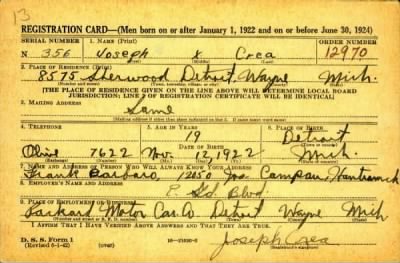 13
REGISTRATION CARD—(Men born on or after January 1, 1922 and on or before June 30, 1924)
SERIAL NUMBER 1. NAME (Print) ORDER NUMBER
N 356 Joseph X Crea 12970
2. PLACE OF RESIDENCE (Print)
8575 Sherwood Detroit, Wayne Mich.
[THE PLACE OF RESIDENCE GIVEN ON THE LINE ABOVE WILL DETERMINE LOCAL BOARD
JURISDICTION; LINE 2 OF REGISTRATION CERTIFICATE WILL BE IDENTICAL]
3. MAILING ADDRESS
Same
4. TELEPHONE 5. AGE IN YEARS 6. PLACE OF BIRTH
19 Detroit
DATE OF BIRTH
Olive 7622 Nov. 12, 1922 Mich.
7. NAME AND ADDRESS OF PERSON WHO WILL ALWAYS KNOW YOUR ADDRESS
Frank Barbaro 12050 Jos. Campau, Hamtramck
8. EMPLOYER'S NAME AND ADDRESS
Blvd.
9. PLACE OF EMPLOYMENT OR BUSINESS
Packard Motor Car Co Detroit Wayne Mich
I AFFIRM THAT I HAVE VERIFIED ABOVE ANSWERS AND THAT THEY ARE TRUE.
D. S. S. Form 1
(Revised 6-1-42) Joseph Crea